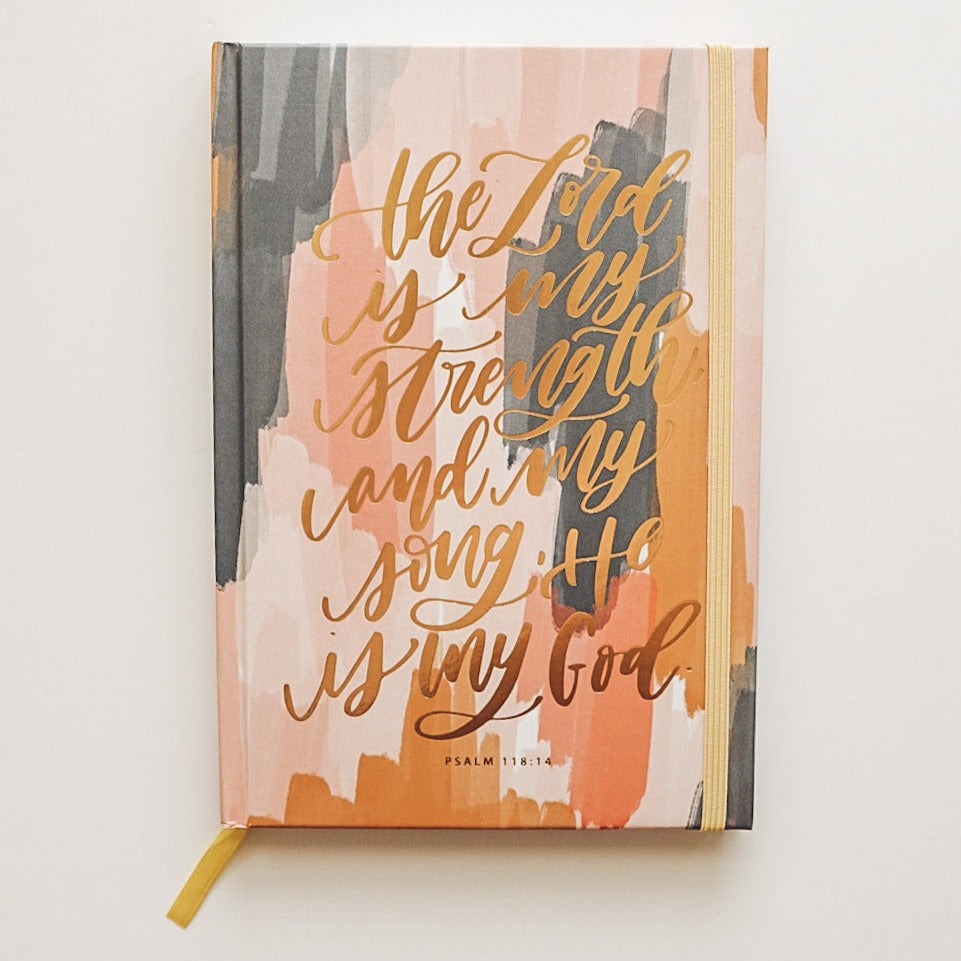 the Lord
is my
strength,
and my
song; He
is my God.
PSALM 118:14